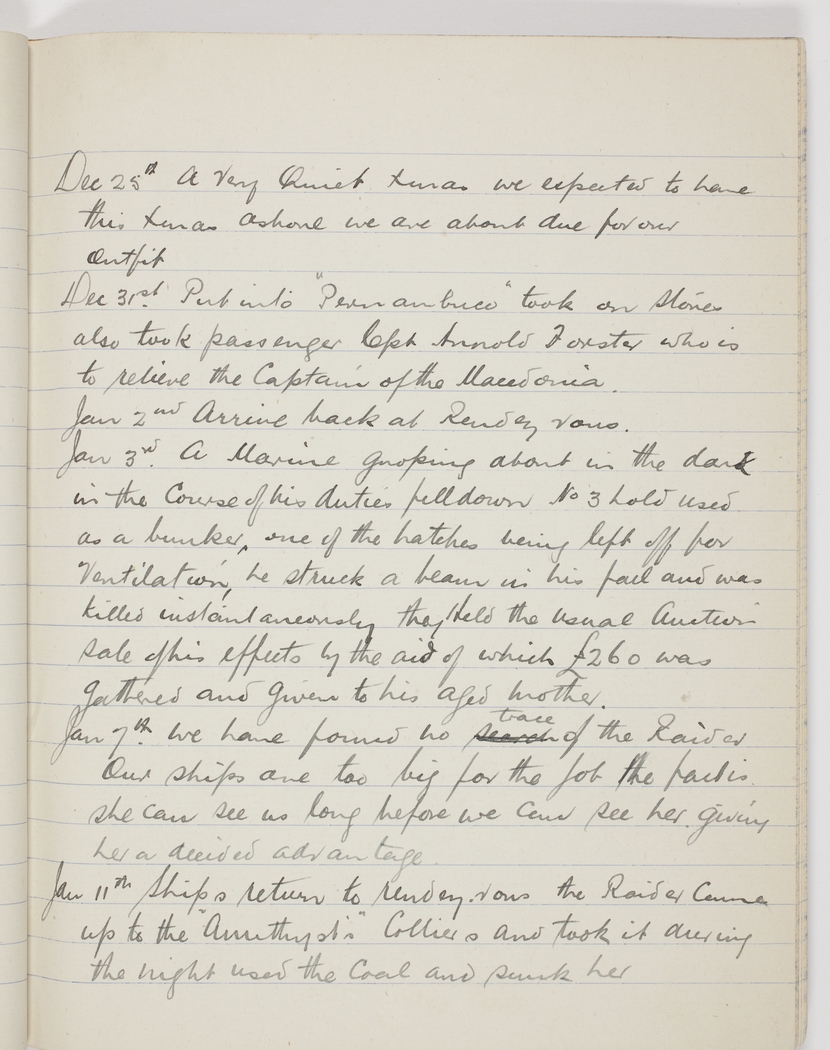 Dec 25th A Very Quiet Xmas we espected to have
this Xmas ashore we are about due for our
Outfit
Dec 31st Put into "Pernambuco" took on stores
also took passenger Capt Arnold Forster who is
to relieve the Captain of the Macedonia.
Jan 2nd Arrive back at Rendezvous.
Jan 3rd. A Marine groping about in the dark
in the Course of his duties fell down No 3 hold used
as a bunker, one of the hatches being left off for
Ventilation, he struck a beam in his fall and was
killed instantaneously they Held the usual Auction
sale of his effects by the aid of which £260 was
gathered and given to his aged mother.
Jan 7th. we have found no search trace of the Raider
Our ships are too big for the Job the fact is
she can see us long before we can see her. giving
her a decided advantage.
Jan 11th Ships return to rendezvous the Raider Came
up to the "Amethyst's" Colliers and took it during
the night used the Coal and sunk her